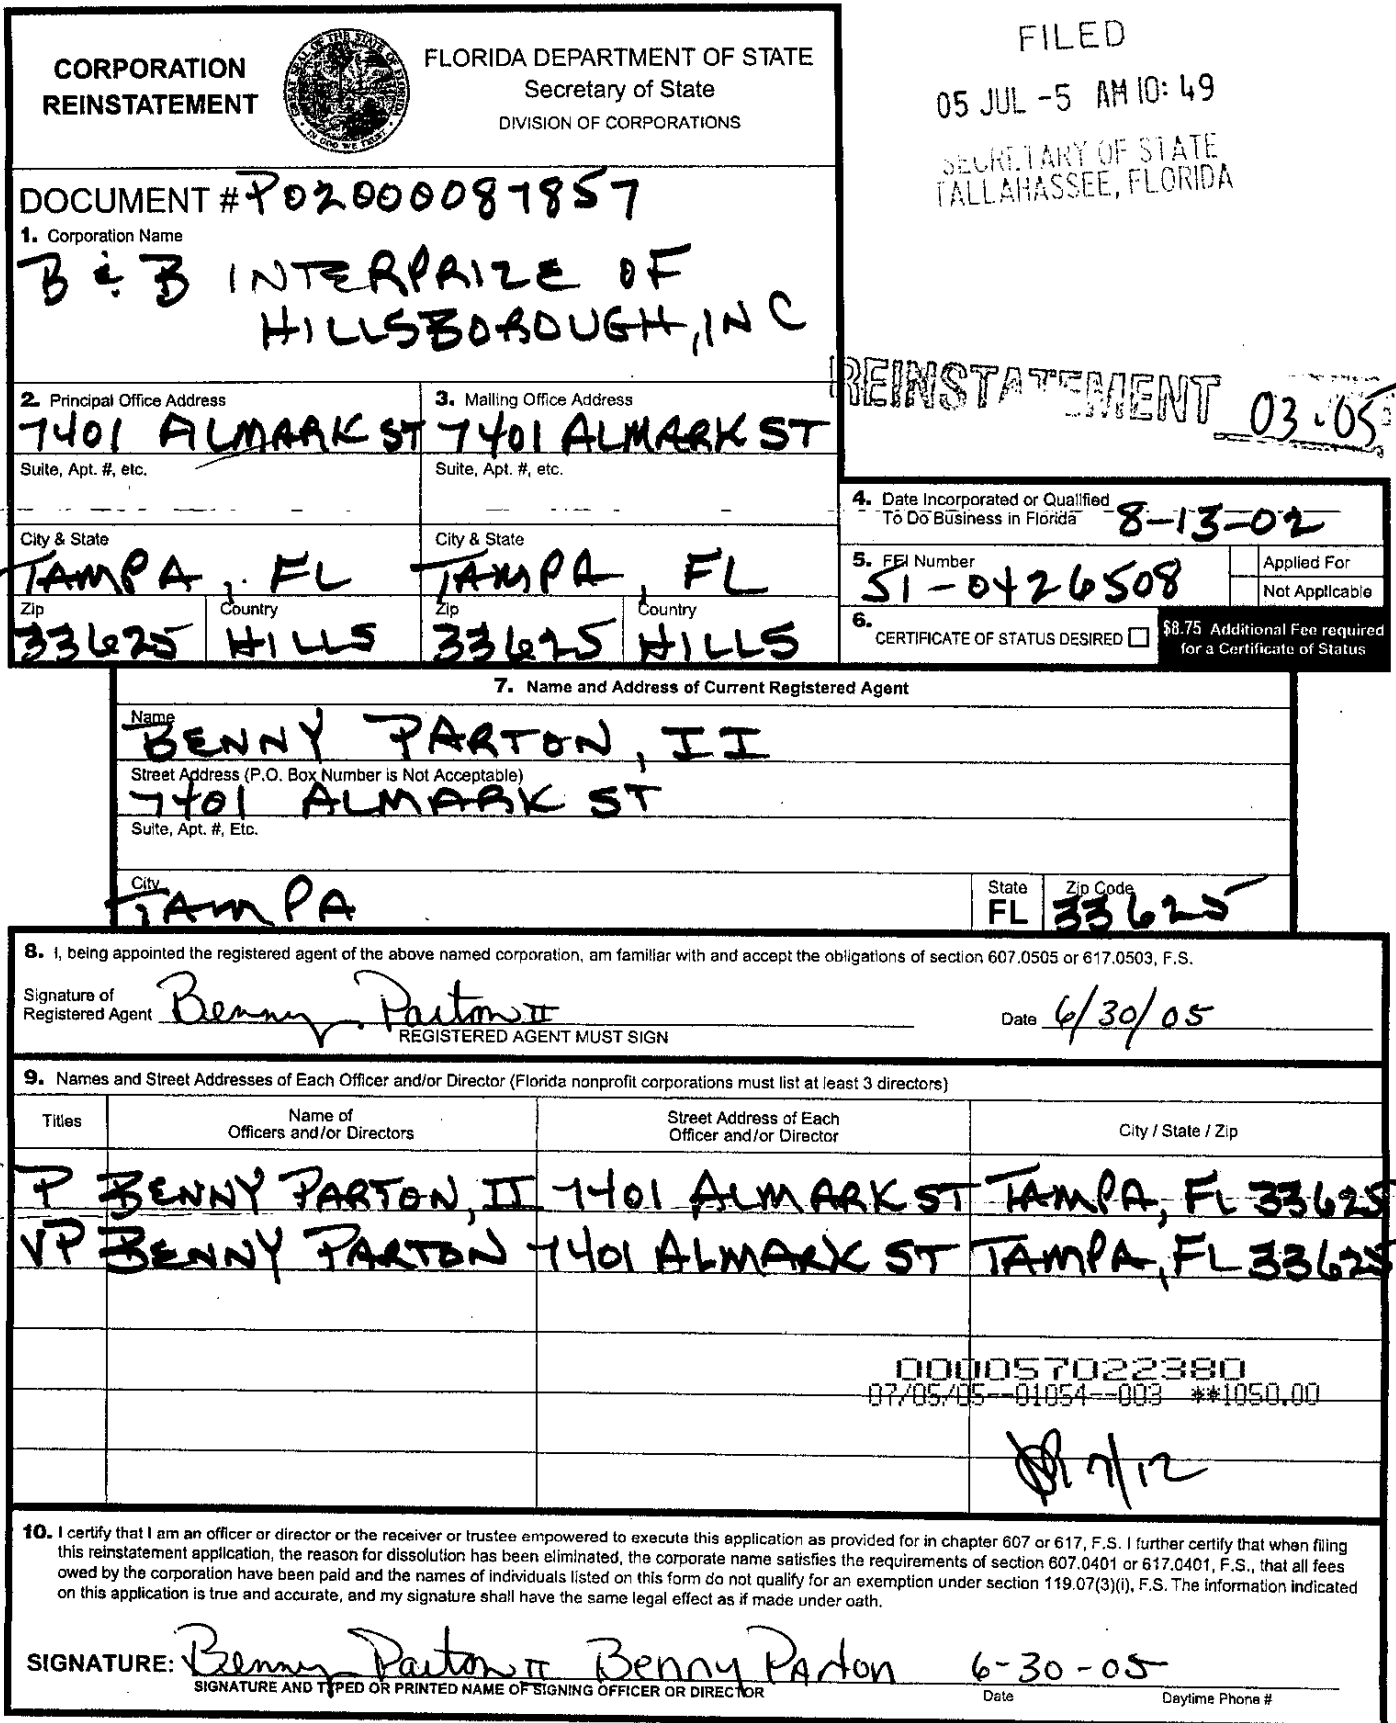 CORPORATION
REINSTATEMENT
FLORIDA DEPARTMENT OF STATE
Secretary of State
DIVISION OF CORPORATIONS
FILED
05 JUL -5 AM 10: 49
SECRETARY OF STATE
TALLAHASSEE, FLORIDA
DOCUMENT # P02000087857
1. Corporation Name
B & B INTERPRIZE OF
HILLSBOROUGH, INC
REINSTATEMENT 03-05
2. Principal Office Address
7401 ALMARK ST
Suite, Apt. #, etc.
City & State
TAMPA, FL
Zip
33625
Country
HILLS
3. Mailing Office Address
7401 ALMARK ST
Suite, Apt. #, etc.
City & State
TAMPA, FL
Zip
33625
Country
HILLS
4. Date Incorporated or Qualified
To Do Business in Florida 8-13-02
5. FEI Number
51-0426508
Applied For
Not Applicable
6.
CERTIFICATE OF STATUS DESIRED
$8.75 Additional Fee required
for a Certificate of Status
7. Name and Address of Current Registered Agent
Name
BENNY PARTON, II
Street Address (P.O. Box Number is Not Acceptable)
7401 ALMARK ST
Suite, Apt. #, Etc.
City
TAMPA
State
FL
Zip Code
33625
8. I, being appointed the registered agent of the above named corporation, am familiar with and accept the obligations of section 607.0505 or 617.0503, F.S.
Signature of
Registered Agent Benny Parton II
REGISTERED AGENT MUST SIGN
Date 6/30/05
9. Names and Street Addresses of Each Officer and/or Director (Florida nonprofit corporations must list at least 3 directors)
Titles
Name of
Officers and/or Directors
Street Address of Each
Officer and/or Director
City / State / Zip
P BENNY PARTON, II 7401 ALMARK ST TAMPA, FL 33625
VP BENNY PARTON 7401 ALMARK ST TAMPA, FL 33625
000057022380
07/05/05--01054--003 **1050.00
7/12
10. I certify that I am an officer or director or the receiver or trustee empowered to execute this application as provided for in chapter 607 or 617, F.S. I further certify that when filing
this reinstatement application, the reason for dissolution has been eliminated, the corporate name satisfies the requirements of section 607.0401 or 617.0401, F.S., that all fees
owed by the corporation have been paid and the names of individuals listed on this form do not qualify for an exemption under section 119.07(3)(i), F.S. The information indicated
on this application is true and accurate, and my signature shall have the same legal effect as if made under oath.
SIGNATURE: Benny Parton II Benny Parton 6-30-05
SIGNATURE AND TYPED OR PRINTED NAME OF SIGNING OFFICER OR DIRECTOR
Date
Daytime Phone #